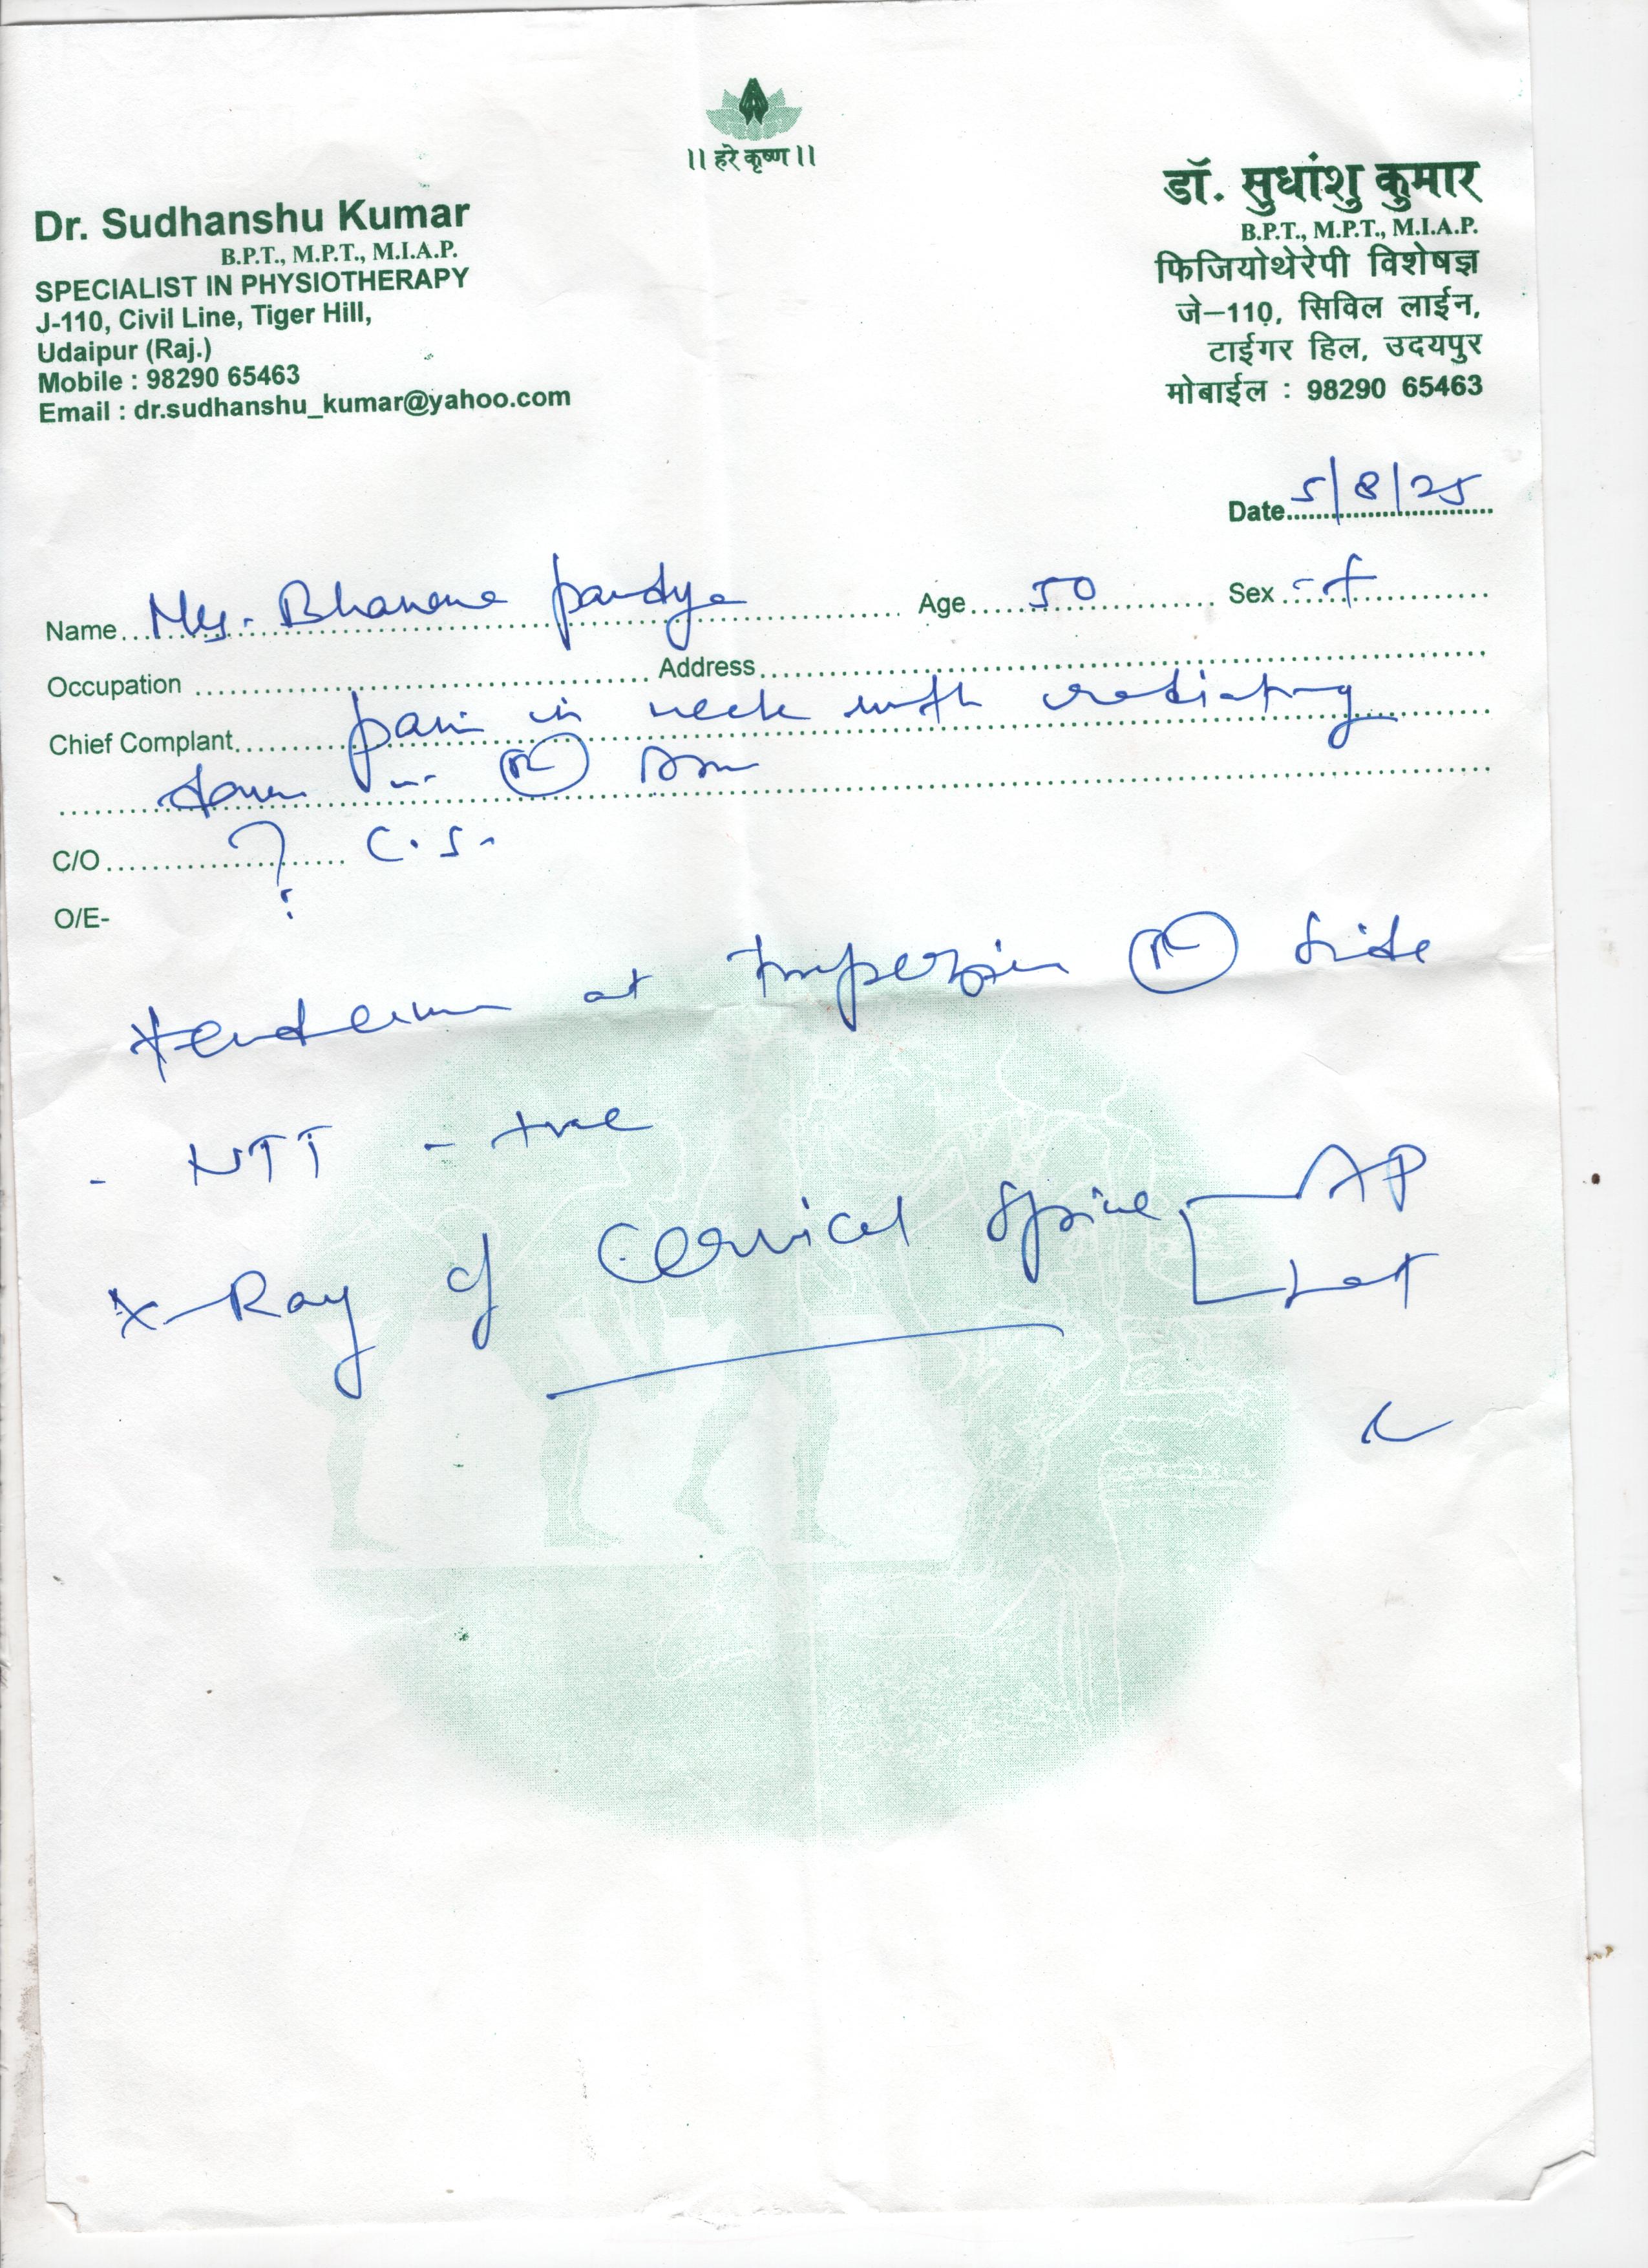 ॥ हरे कृष्ण ॥
Dr. Sudhanshu Kumar
B.P.T., M.P.T., M.I.A.P.
SPECIALIST IN PHYSIOTHERAPY
J-110, Civil Line, Tiger Hill,
Udaipur (Raj.)
Mobile : 98290 65463
Email : dr.sudhanshu_kumar@yahoo.com
डॉ. सुधांशु कुमार
B.P.T., M.P.T., M.I.A.P.
फिजियोथेरेपी विशेषज्ञ
जे-110, सिविल लाईन,
टाईगर हिल, उदयपुर
मोबाईल : 98290 65463
Date 5/8/25
Name Bhavana Pandya Age 50 Sex - f
Occupation Address
Chief Complant pain in neck with radiating
down in (R) Arm
C/O ? C.S.
O/E-
at (R) side
- NTT - +ve
X-Ray of Cervical Spine AP
Lat